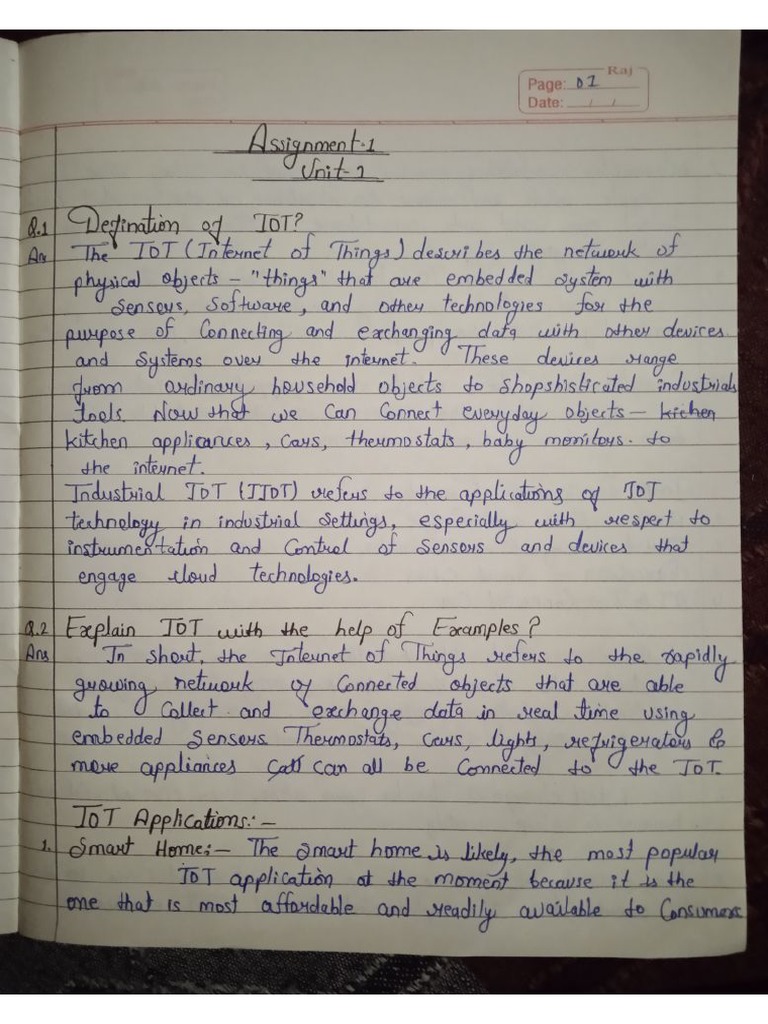 Raj
Page: 01
Date: / /
Assignment-1
Unit-1
Q.1 Defination of IOT?
Ans The IOT (Internet of Things) describes the network of
physical objects – "things" that are embedded system with
sensors, software, and other technologies for the
purpose of connecting and exchanging data with other devices
and systems over the internet. These devices range
from ordinary household objects to shopshisticated industrials
tools. Now that we can connect everyday objects – kichen
kitchen appliances, cars, thermostats, baby monitors. to
the internet.
Industrial IOT (IIOT) refers to the applications of IOT
technology in industrial settings, especially with respert to
instrumentation and control of sensors and devices that
engage cloud technologies.
Q.2 Explain IOT with the help of Examples?
Ans In short, the Internet of Things refers to the rapidly
growing network of connected objects that are able
to collect and exchange data in real time using
embedded sensors Thermostats, cars, lights, refrigerators &
more appliances can all be connected to the IOT.
IOT Applications:-
1. Smart Home:- The smart home is likely, the most popular
IOT application at the moment because it is the
one that is most affordable and readily available to consumers